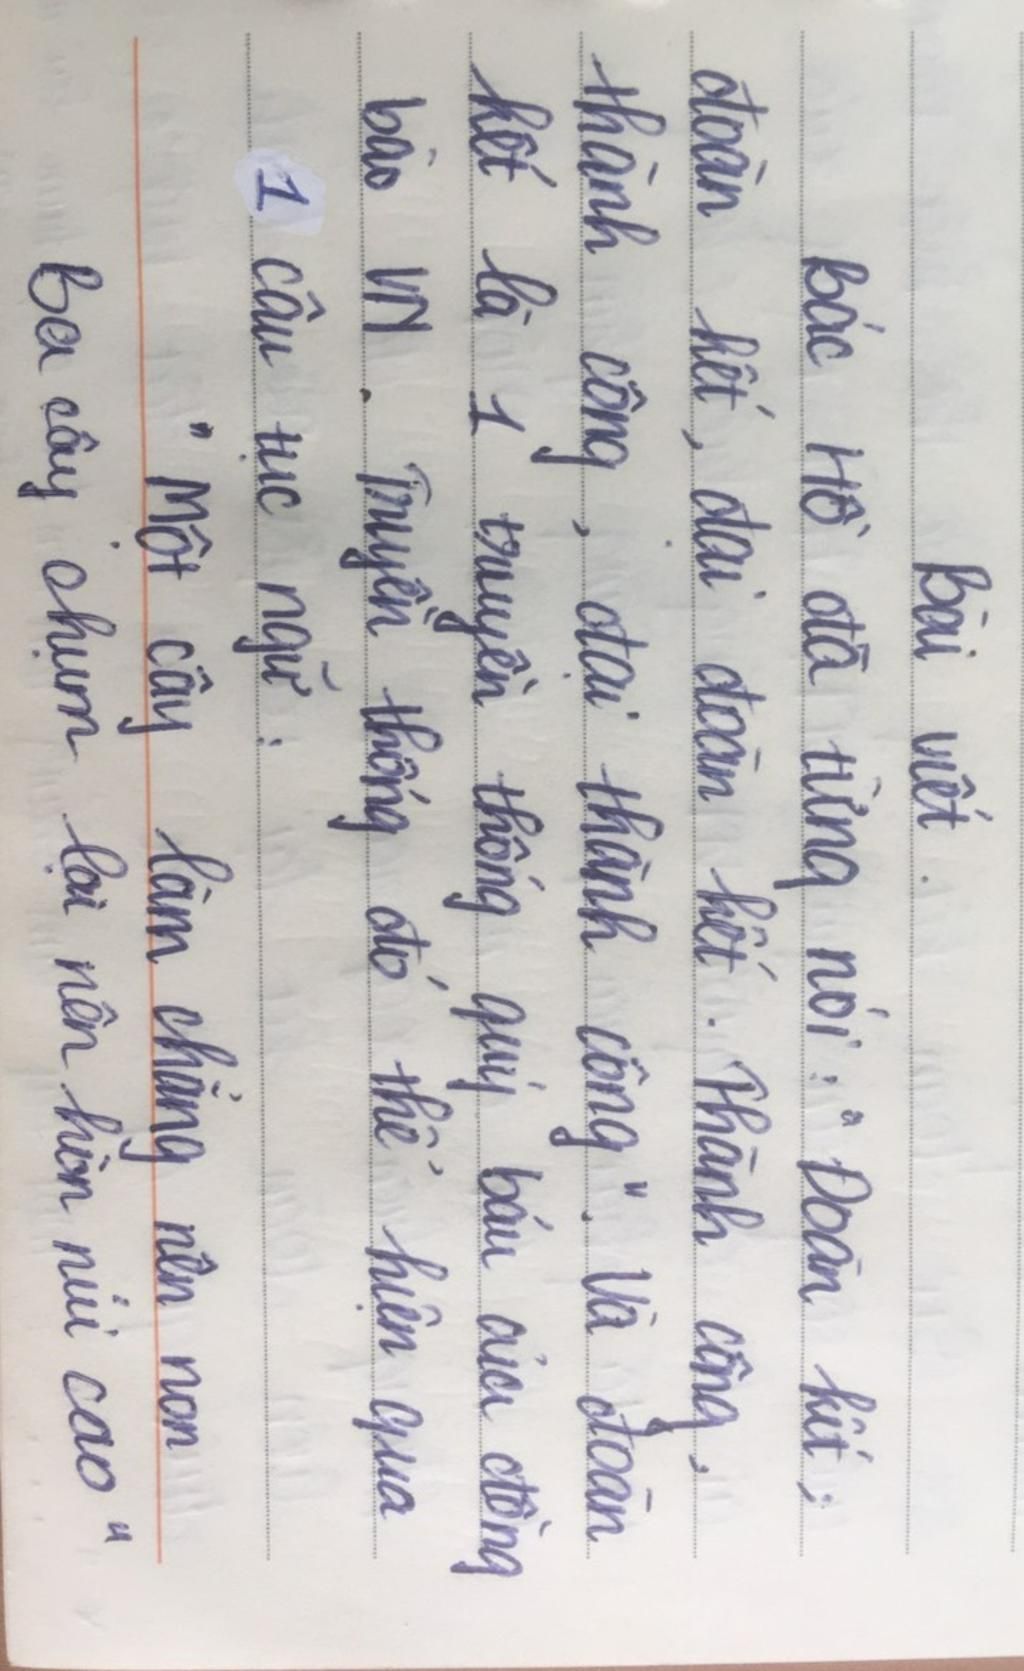 Bài viết.
Bác Hồ đã từng nói: "Đoàn kết,
đoàn kết, đại đoàn kết. Thành công,
thành công, đại thành công". Và đoàn
kết là 1 truyền thống quý báu của đồng
bào VN. Truyền thống đó thể hiện qua
1 câu tục ngữ:
"Một cây làm chẳng nên non
Ba cây chụm lại nên hòn núi cao"